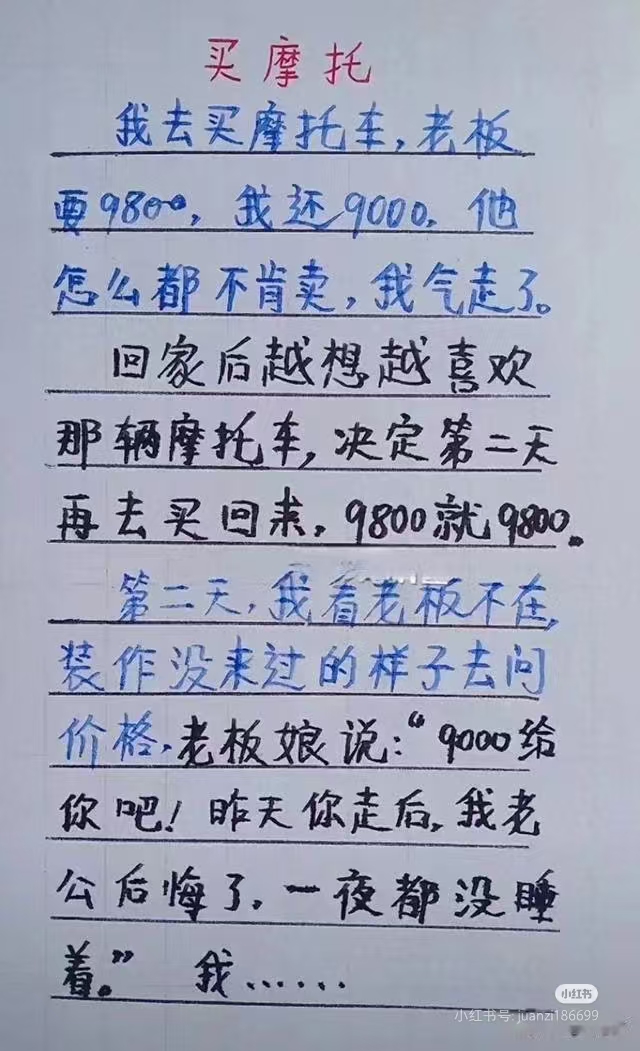 买摩托
我去买摩托车,老板
要9800,我还9000,他
怎么都不肯卖,我气走了。
回家后越想越喜欢
那辆摩托车,决定第二天
再去买回来,9800就9800。
第二天,我看老板不在,
装作没来过的样子去问
价格,老板娘说:“9000给
你吧!昨天你走后,我老
公后悔了,一夜都没睡
着。” 我……
小红书
小红书号: juanzi186699